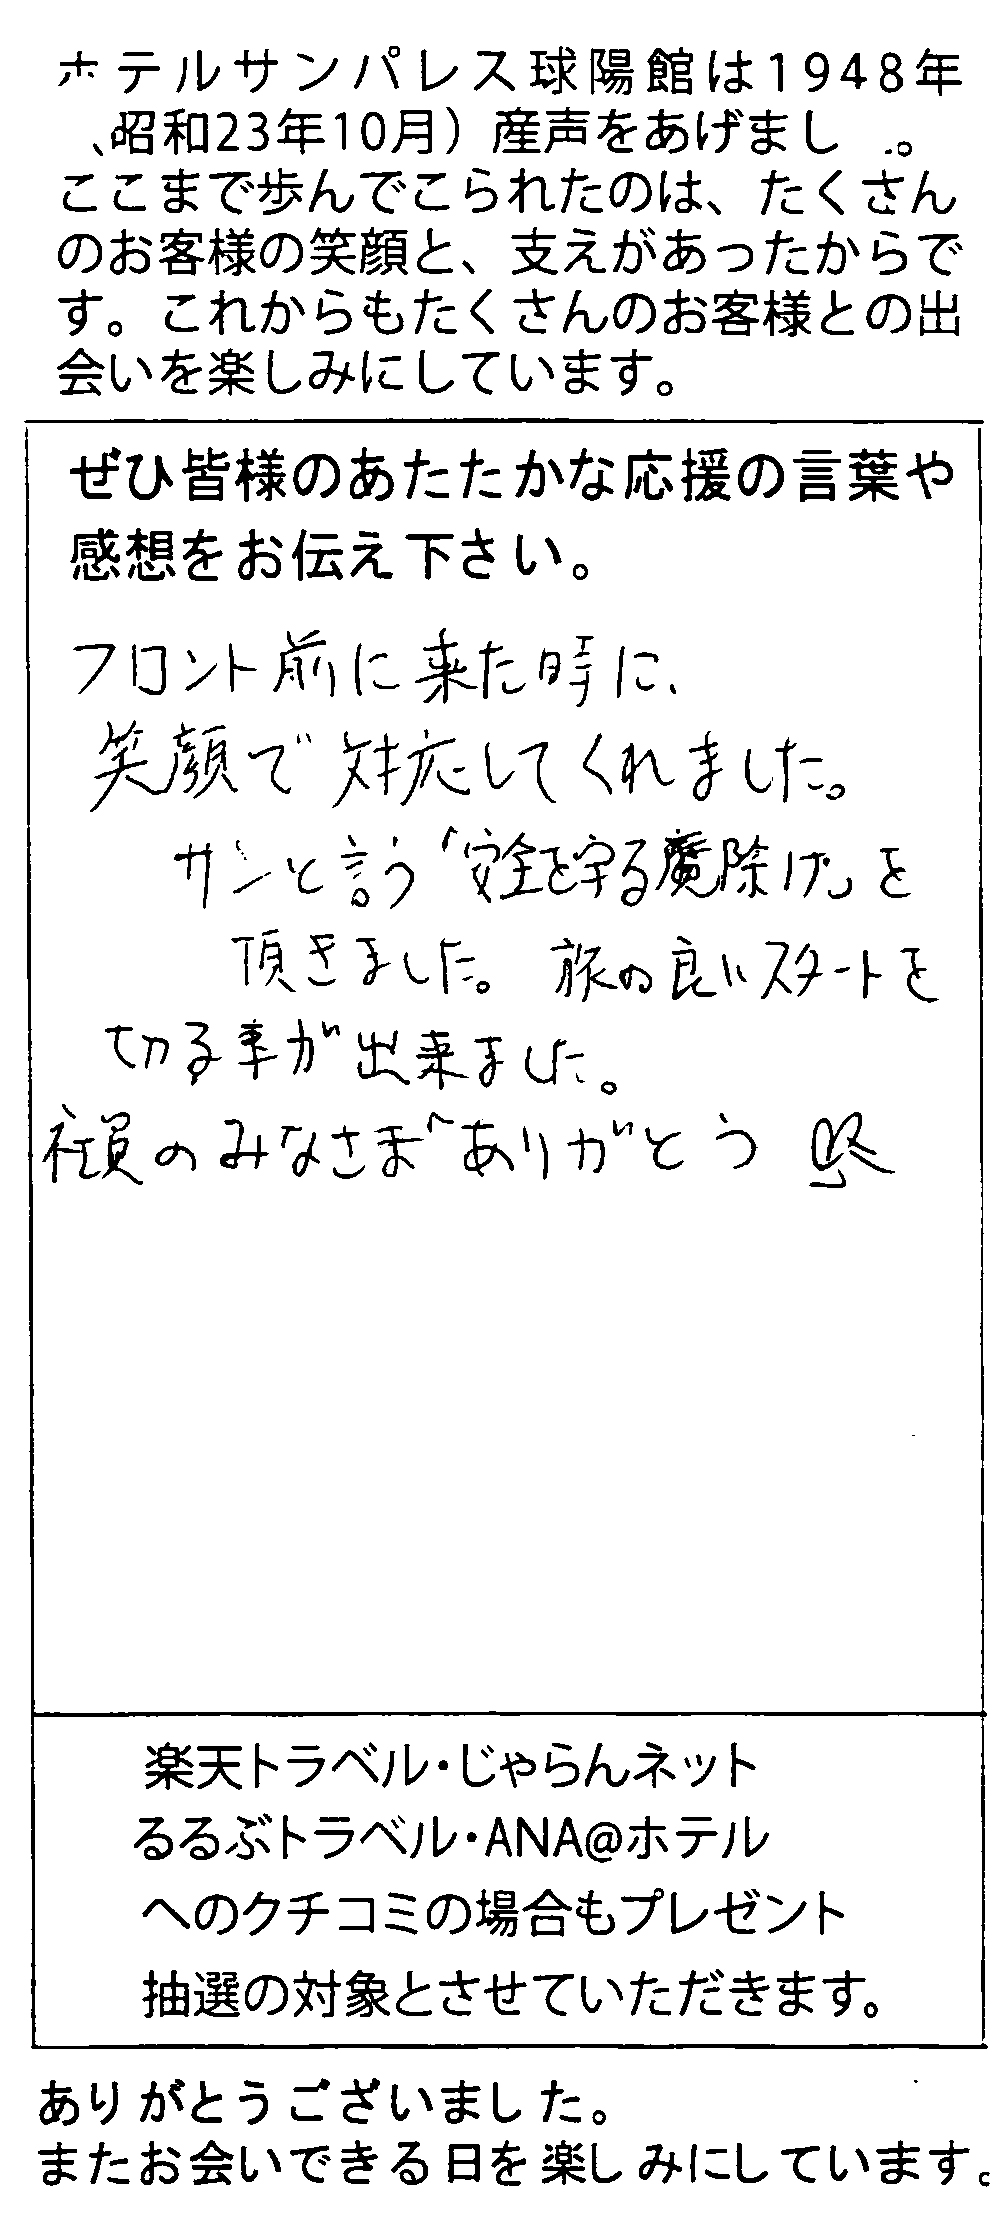 ホテルサンパレス球陽館は1948年
昭和23年10月）産声をあげまし 。
ここまで歩んでこられたのは、たくさん
のお客様の笑顔と、支えがあったからで
す。これからもたくさんのお客様との出
会いを楽しみにしています。
ぜひ皆様のあたたかな応援の言葉や
感想をお伝え下さい。
フロント前に来た時に、
笑顔で対応してくれました。
サンと言う「安全を守る魔除け」を
頂きました。旅の良いスタートを
切る事が出来ました。
社員のみなさまありがとう
楽天トラベル・じゃらんネット
るるぶトラベル・ANA@ホテル
へのクチコミの場合もプレゼント
抽選の対象とさせていただきます。
ありがとうございました。
またお会いできる日を楽しみにしています。